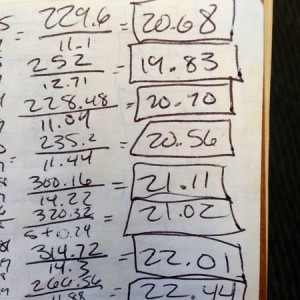 229.6
= 20.68
11.1
252
= 19.83
12.71
228.48
= 20.70
11.04
235.2
= 20.56
11.44
300.16
= 21.11
14.22
320.32
= 21.02
5+10.24
314.72
= 22.01
14.3
266.56
= 22.44
11.88